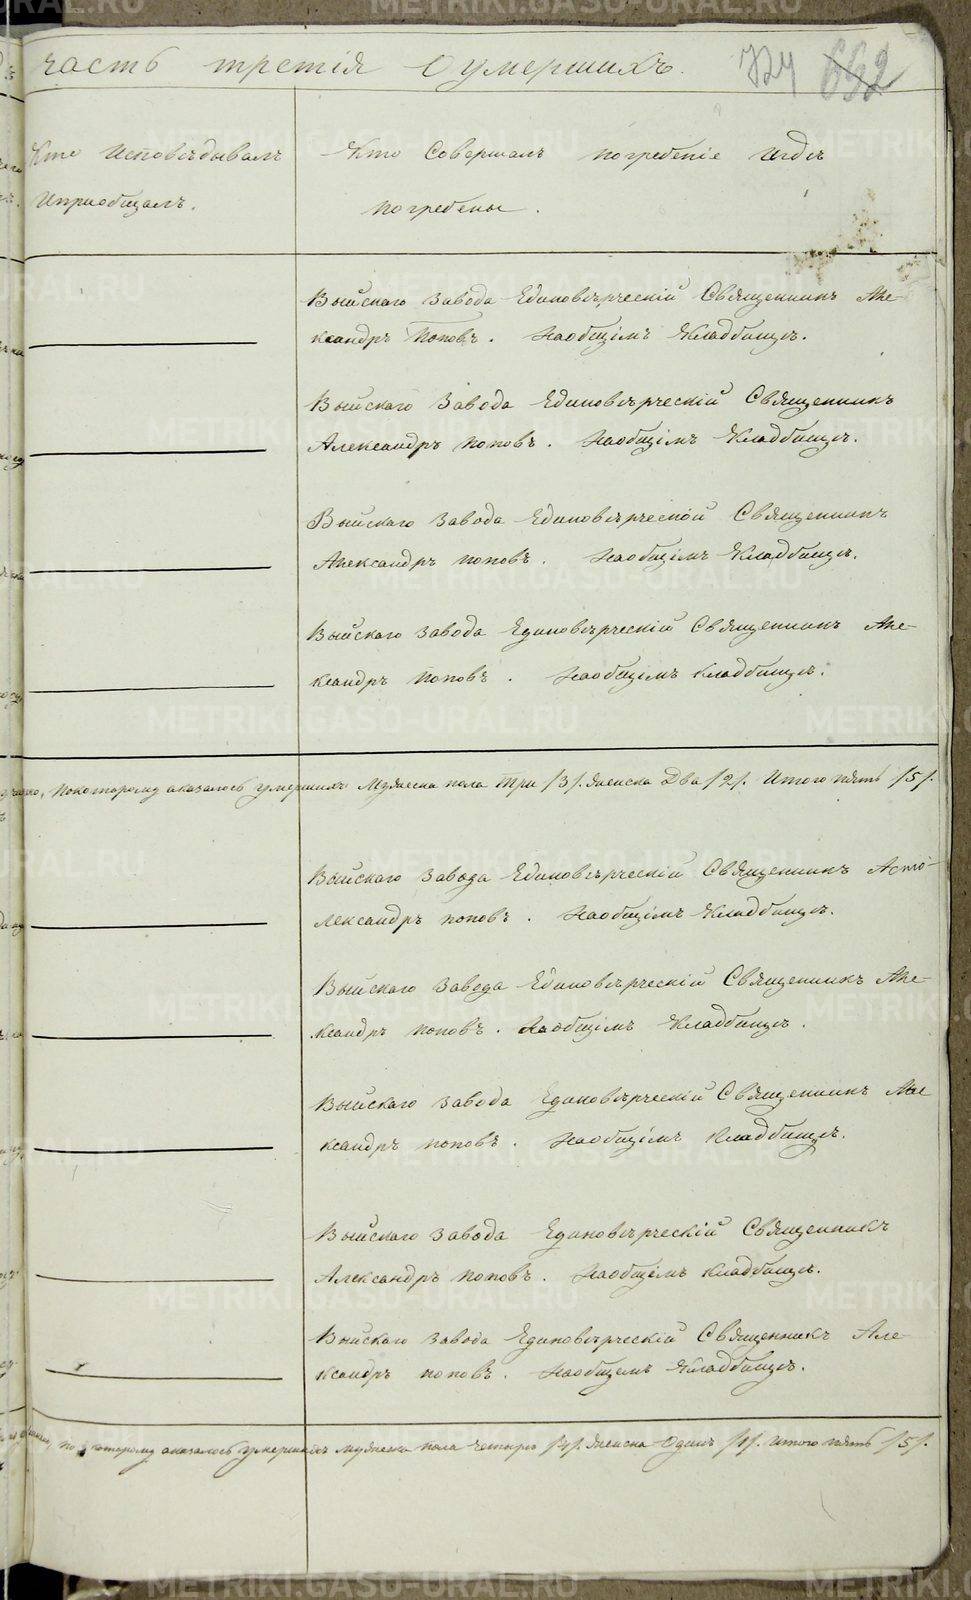 часть третія Оумершихъ. 724 652
Кто Исповѣдывалъ
Ипріобщалъ.
Кто Совершалъ погребеніе Игдѣ
погребены.
Выйскаго Завода Единовѣрческій Священникъ Але-
ксандръ Поповъ. Наобщемъ Кладбищѣ.
Выйскаго Завода Единовѣрческій Священникъ
Александръ поповъ. Наобщемъ Кладбищѣ.
Выйскаго завода Единовѣрческій Священникъ
Александръ поповъ. Наобщемъ Кладбищѣ.
Выйскаго завода Единовѣрческій Священникъ Але-
ксандръ поповъ. Наобщемъ кладбищѣ.
покоторому аказалось умершихъ Мужеска пола три /3/. женска Два /2/. Итого пять /5/.
Выйскаго завода Единовѣрческій Священникъ
лександръ поповъ. Наобщемъ Кладбищѣ.
Выйскаго завода Единовѣрческій Священникъ Але-
ксандръ поповъ. Наобщемъ Кладбищѣ.
Выйскаго завода Единовѣрческій Священникъ Але
ксандръ поповъ. Наобщемъ кладбищѣ.
Выйскаго завода Единовѣрческій Священникъ
Александръ поповъ. Наобщемъ кладбищѣ.
Выйскаго завода Единовѣрческій Священникъ Але-
ксандръ поповъ. Наобщемъ Кладбищѣ.
по которому аказалось умершихъ мужеска пола четыре /4/. женска Одинъ /1/. итого пять /5/.
METRIKI.GASO-URAL.RU